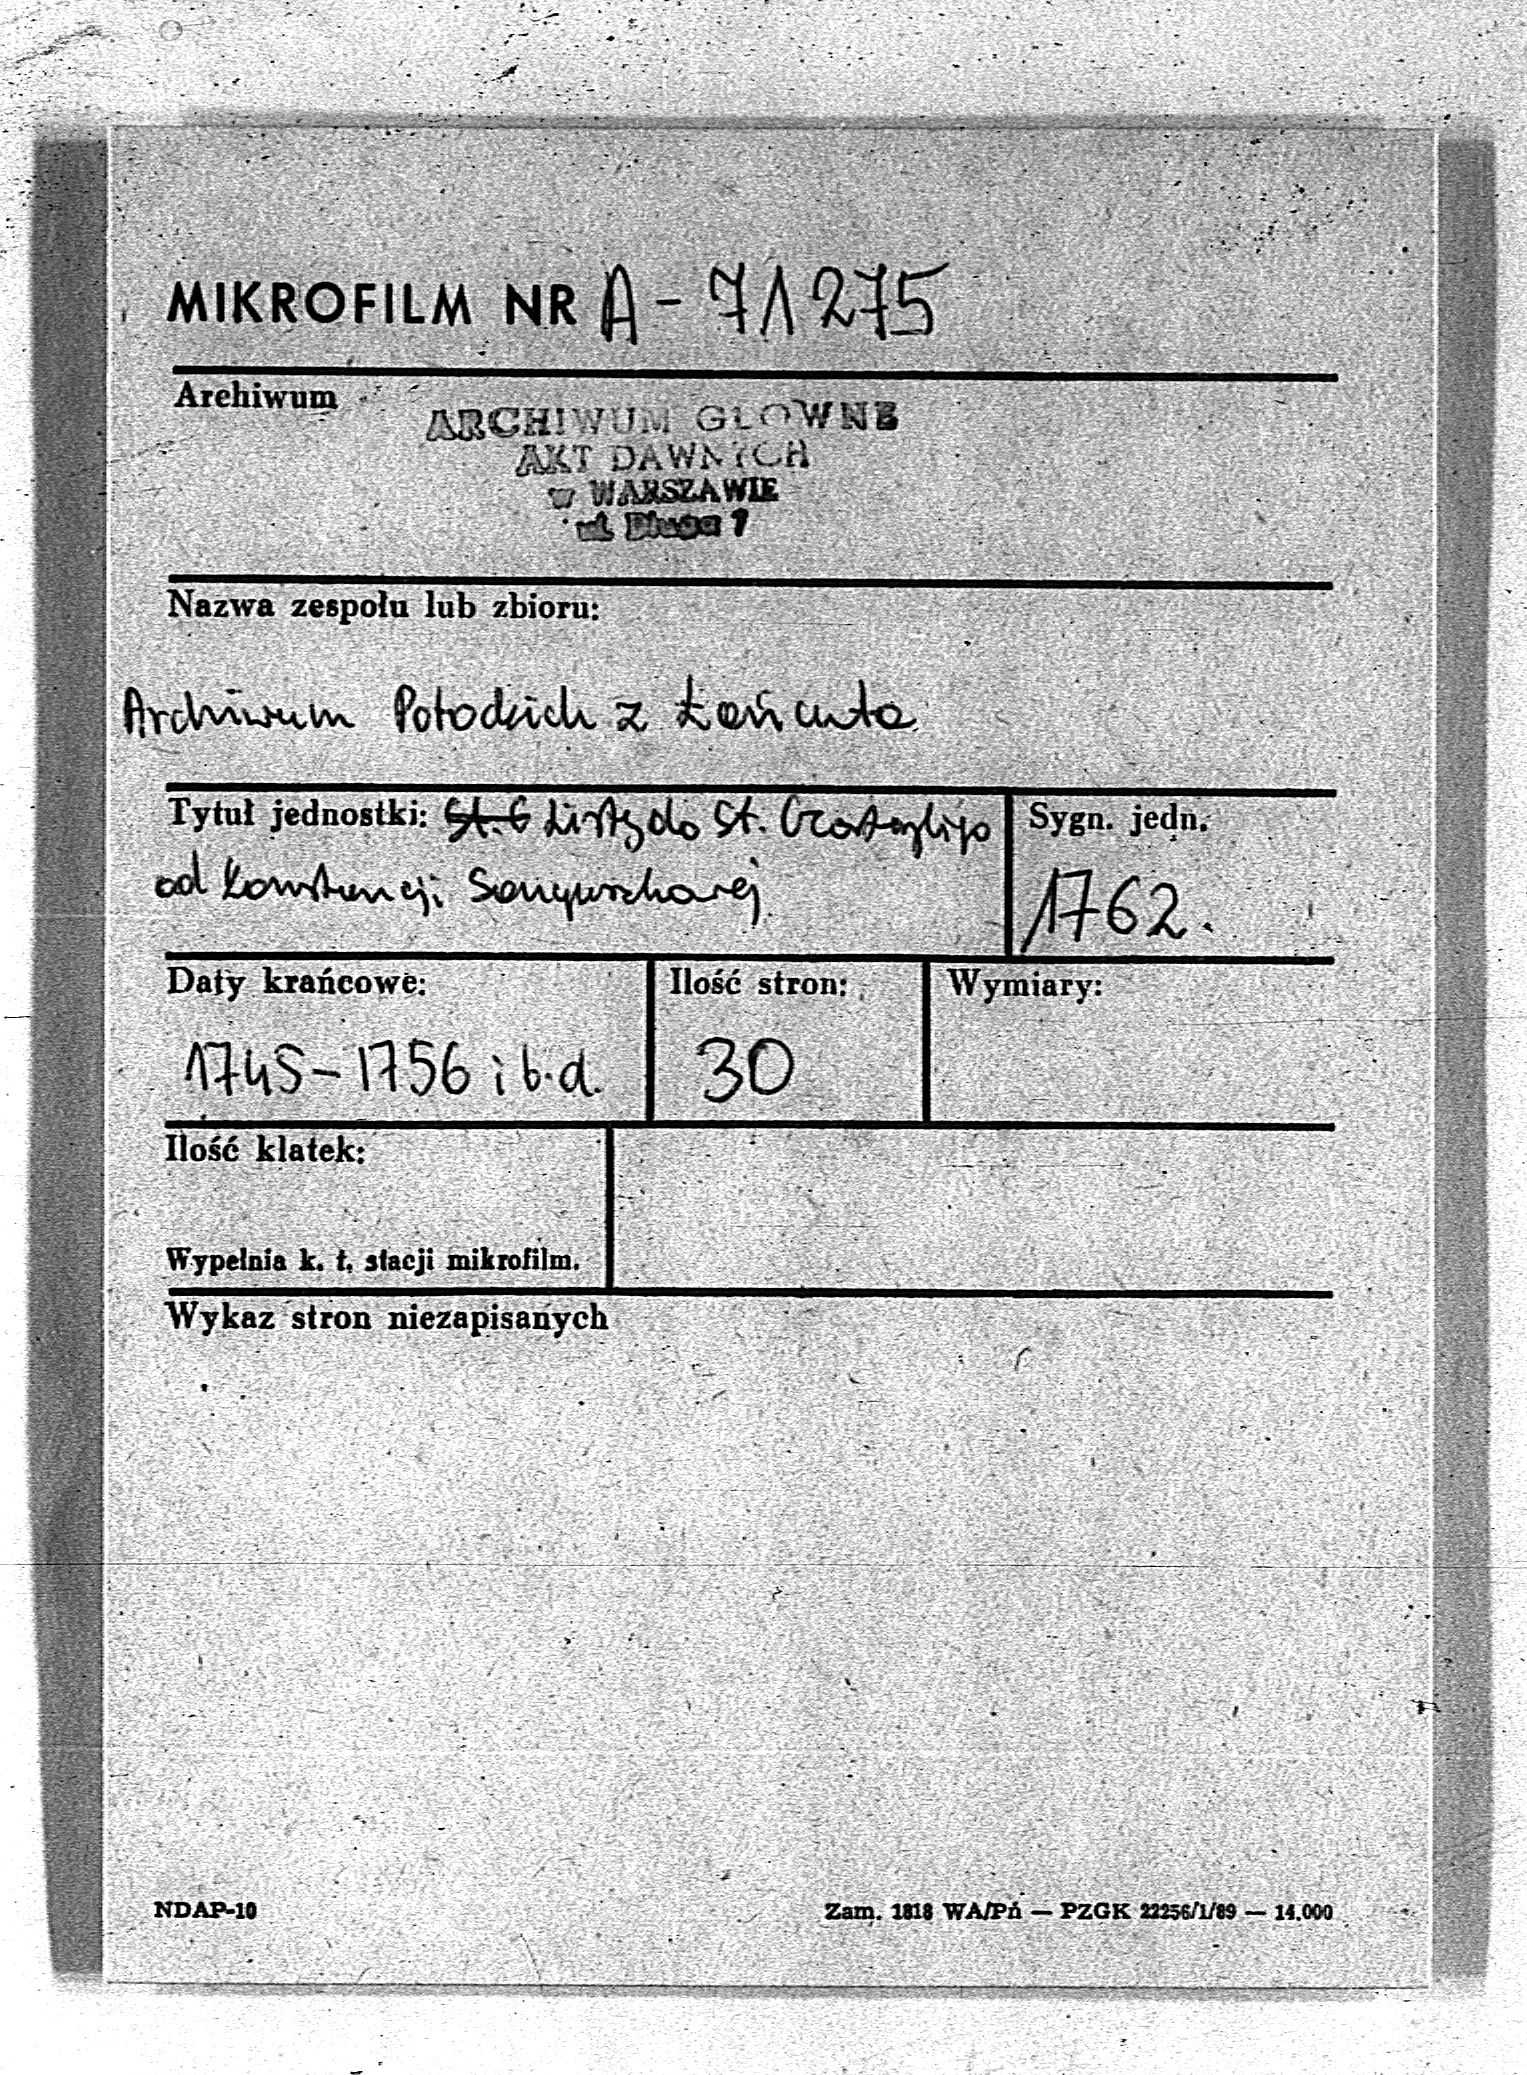 MIKROFILM NR A-71275
Archiwum
ARCHIWUM GŁOWNE
AKT DAWNYCH
w WARSZAWIE
ul. Długa 7
Nazwa zespołu lub zbioru:
Archiwum Potockich z Łańcuta
Tytuł jednostki: St. G Listy do St.
od Konstancji Sanguszkowej
Sygn. jedn.
1762.
Daty krańcowe:
1745-1756 i b.d.
Ilość stron:
30
Wymiary:
Ilość klatek:
Wypełnia k. t. stacji mikrofilm.
Wykaz stron niezapisanych
NDAP-10
Zam. 1818 WA/Pń — PZGK 22256/1/89 — 14.000